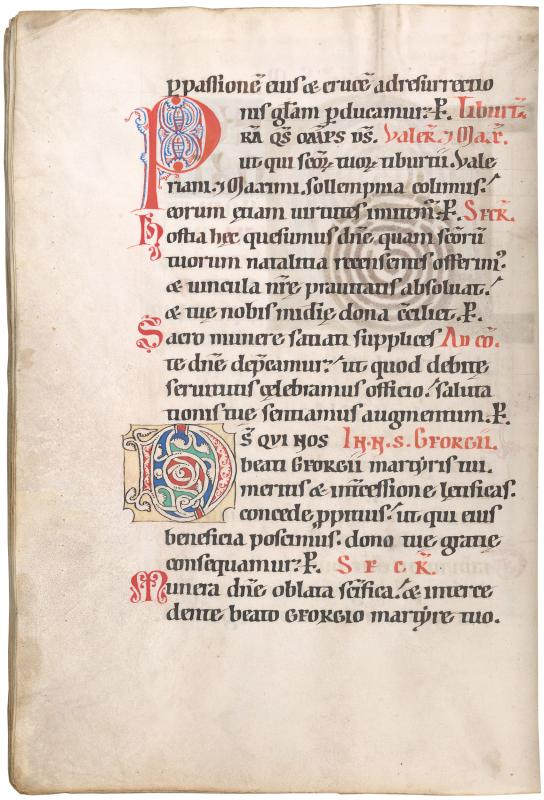 p passionē eius & crucē ad resurrectio
nis głam p̱ducamur. P̱. Tiburtii.
P Rā q̄s om̄ps d̄s. Valer̄. ⁊ Max̄.
ut qui sc̄oꝝ tuoꝝ tiburtii. Vale
riani. ⁊ Maximi. sollempnia colimus.
eorum etiam uirtutes imitem̄. P̱. Secr̄.
Hostia hec quesumus dn̄e quam sc̄orū
tuorum natalitia recensentes offerim᷒
& uincula nr̄e prauitatis absoluat.
& tue nobis mīdie dona c̄ciliet. P̱.
Sacro munere satiati supplices An cō.
te dn̄e dep̄camur. ut quod debite
seruitutis celebramus officio. salua
tionis tue sentiamus augmentum. P̱.
Ds̄ QVI NOS IN. N. S. GEORGII.
beati GEORGII martyris tui.
meritis & int̄cessione letificas.
concede p̱pitius. ut qui eius
beneficia poscimus. dono tue gratie
consequamur. P̱. S E C R̄.
Munera dn̄e oblata sc̄ifica. & interce
dente beato GEORGIO martyre tuo.